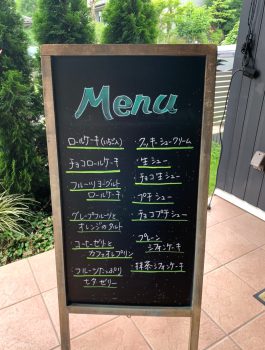 Menu
・ロールケーキ(いちご入)
・チョコロールケーキ
・フルーツヨーグルト
ロールケーキ
・グレープフルーツと
オレンジのタルト
・コーヒーゼリーと
カフェオレプリン
・フルーツたっぷり
七夕ゼリー
・クッキーシュークリーム
・生シュー
・チョコ生シュー
・プチシュー
・チョコプチシュー
・プレーン
シフォンケーキ
・抹茶シフォンケーキ